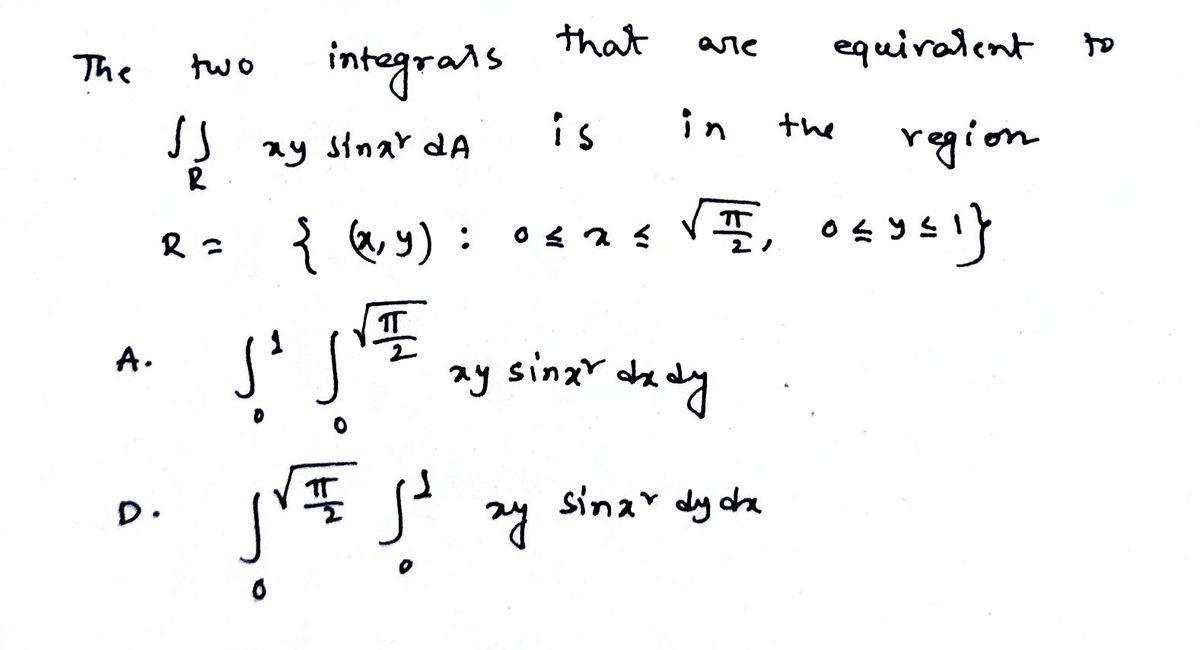 The two integrals that are equivalent to
∬_R xy sinx² dA is in the region
R = { (x, y) : 0 ≤ x ≤ √(π/2), 0 ≤ y ≤ 1}
A. ∫₀¹ ∫₀^√(π/2) xy sinx² dx dy
D. ∫₀^√(π/2) ∫₀¹ xy sinx² dy dx